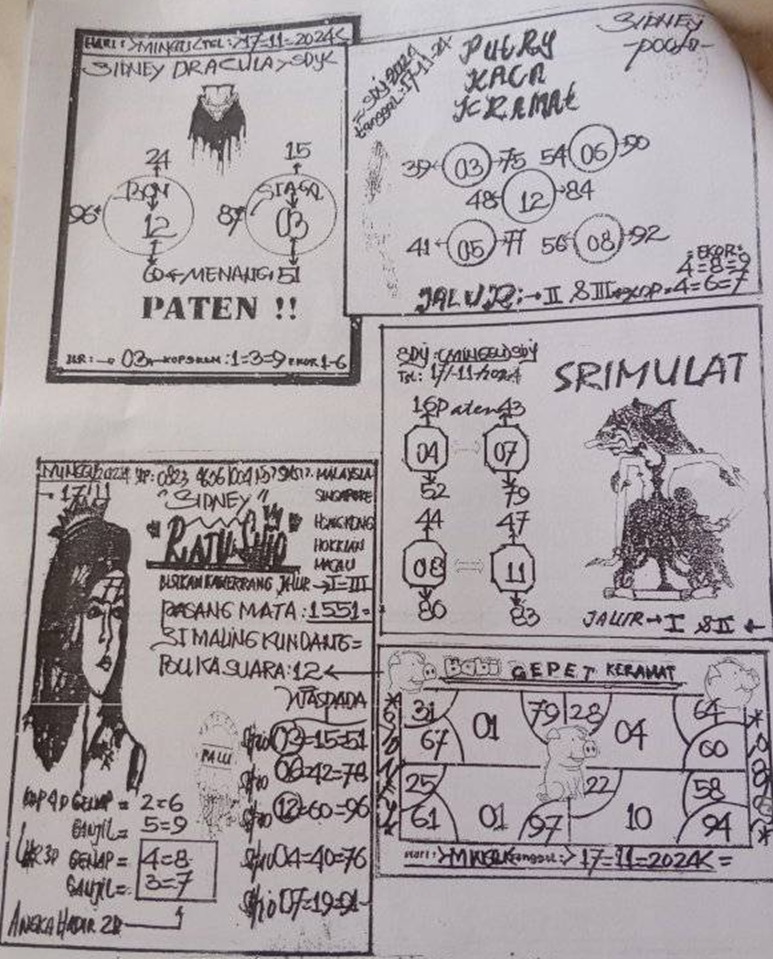 HARI : > MINGGU < TGL : > 17=11=2024 <
SIDNEY DRACULA > SDY <
24
15
BOM
SIAGA
96
12
87
03
60 MENANG 51
PATEN !!
03 1=3=9 EKOR 1-6
SIDNEY
-POOLS-
= SDY 2024
tanggal : 17-11-24
PUTRY
KACA
KRAMAt
39 03 75 54 06 90
48 12 84
41 05 77 56 08 92
: EKOR :
4=8=9
JALUR : → II & III KOP = 4=6=7
SDY :
TGL : 17/-11-/2024
SRIMULAT
16 Paten 43
04 07
52 79
44 47
08 11
80 83
JALUR → I & II ←
MINGGU 2024
MALAYSIA
17/11
SINGAPORE
"SIDNEY"
HONGKONG
"RATU SHIO"
HOKKIAN
MACAU
JALUR → I=III
PASANG MATA : 1551=
SI MALING KUNDANG=
BUKA SUARA : 12 ←
WASPADA
SHIO 03=15=51
PALU
SHIO 06=42=78
SHIO 12=60=96
SHIO 04=40=76
SHIO 07=19=91
KOP 4D GENAP = 2=6
GANJIL = 5=9
GENAP = 4=8
GANJIL = 3=7
ANGKA HADIR 2D
Babi GEPET KERAMAT
31 01 79 28 04 64
67 60
25 22 58
61 01 97 10 94
HARI : > MINGGU < tanggal : > 17=11=2024 < =